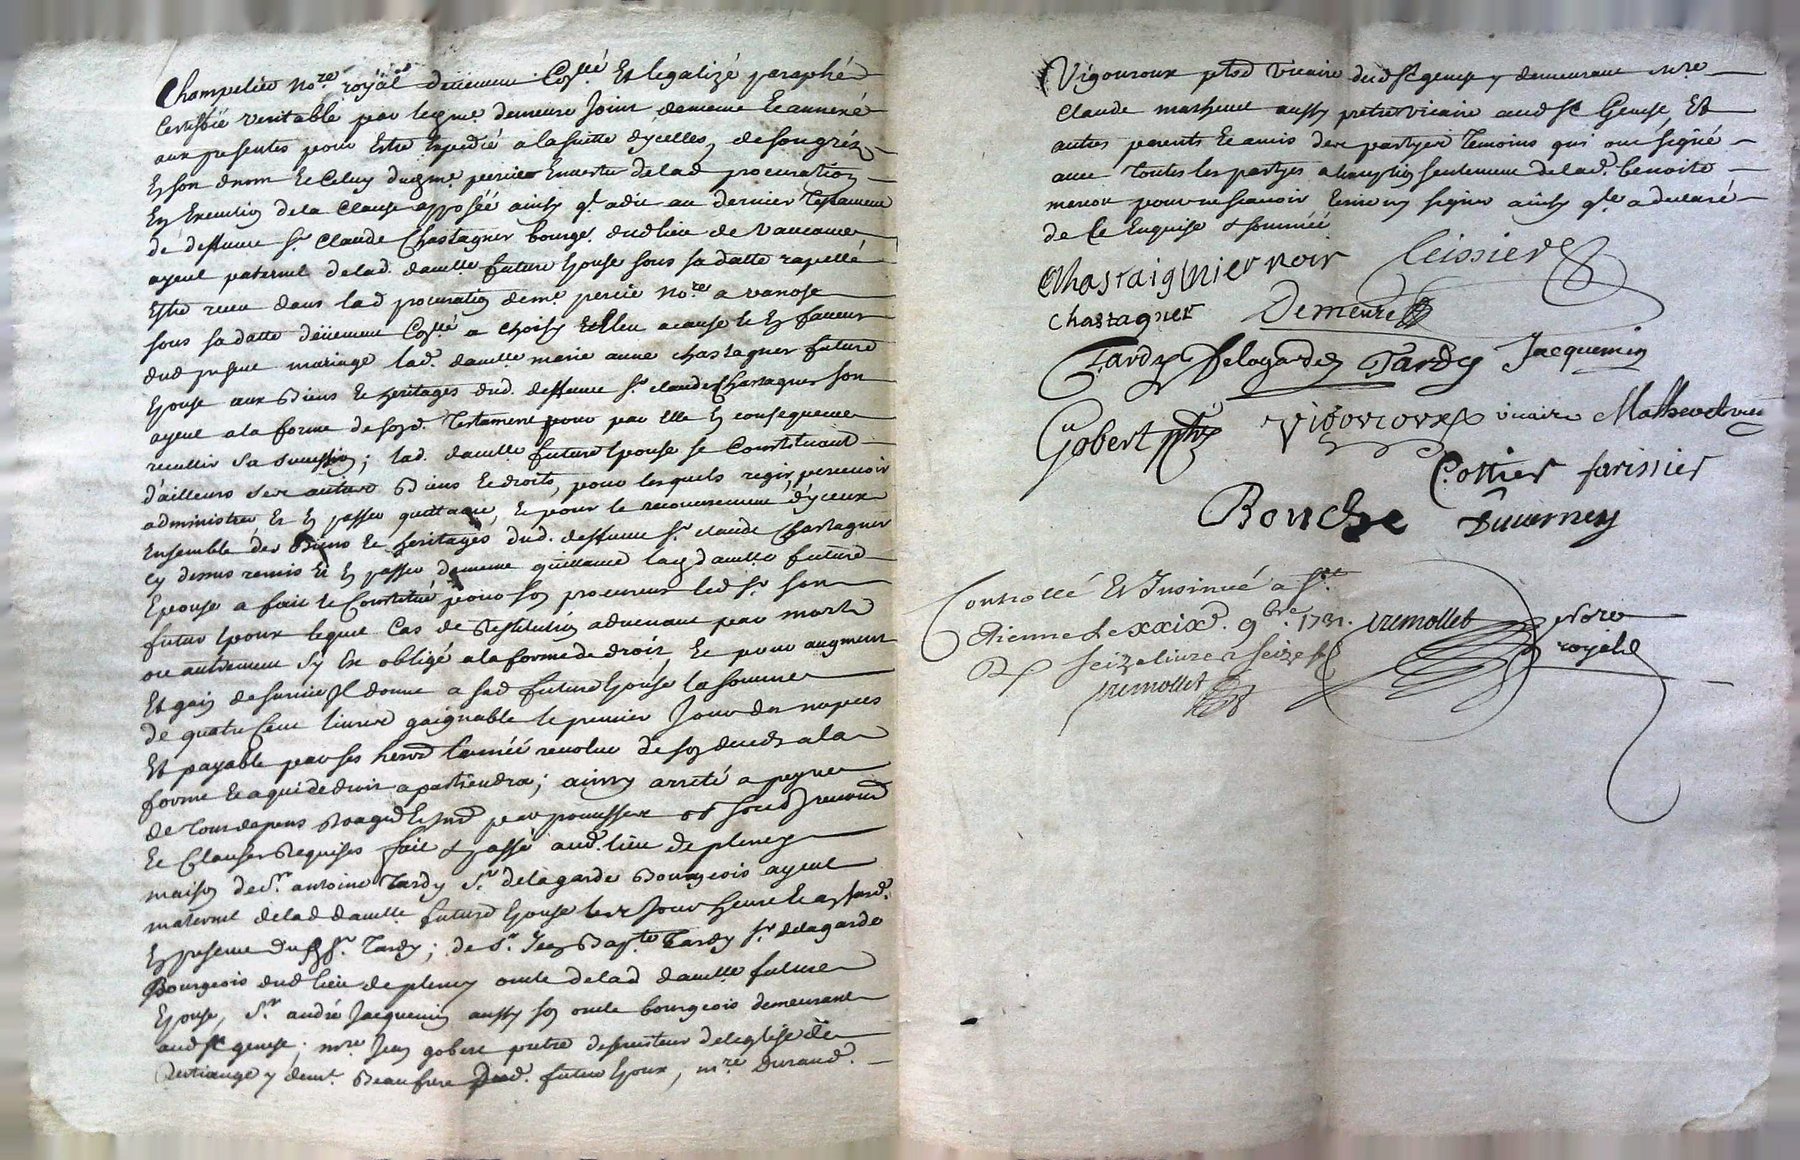 Champelier no.re royal duement Co.llé Et legalizé paraphé
Certiffié veritable par leqme demeure Joint dememe Et annexé
aux presentes pour Estre Expedié a la suitte dycelles, de son gré
Et son dnom Et Celuy dudme percier En vertu de lad procuration
En Execution de la Clause apposéé ainsy q.l a dit au dernier Testament
de deffunt S.r Claude Chastagner bourg.s dud lieu de Vancance
ayeul paternel de lad. dauelle future Epouse sous sa datte rapellé
Estre receu dans lad procuration de me. percie no.re a vanose
sous sa datte duement Co.llé a choisy Et Eleu a cause Et En faveur
dud present mariage lad.e dauelle marie anne chastagner future
Epouse aux Biens Et heritages dud. deffunt S.r claude Chastagner son
ayeul a la forme de sond. Testament pour par elle En consequence
recullir sa succession; lad. dauelle future Epouse se Constituant
d'ailleurs ses autres Biens Et droits, pour lesquels regir, percevoir
administrer, Et En passer quittance, Et pour le recouvrement d'yceux
Ensemble des Biens Et heritages dud. deffunt S.r claude Chastagner
cy dessus remis Et En passer dememe quittance lad dauelle future
Epouse a fait Et Constitué pour son procureur led S.r son
futur Epoux lequel Cas de Restitution advenant par mort
ou autrement s'y Est obligé a la forme de droit, Et pour augment
Et gain de survie Il donne a sad future Epouse la somme
de quatre Cent livres gaignable le premier Jour des nopces
Et payable par ses hers l'année revolue de son deceds a la
forme Et a qui de droit apartiendra; ainsy arreté a peyne
de Tous depens Domages Et Int par promesses
Et Clauses Requises fait & passé aud. lieu de pleney
maison de S.r antoine Tardy S.r delagarde Bourgeois ayeul
maternel de lad dauelle future Epouse
En presence dud S.r Tardy; de S.r Jean Bap.te Tardy S.r delagarde
Bourgeois dud lieu de pleney oncle de lad dauelle future
Epouse, S.r andré Jacquemin aussy son oncle bourgeois demeurant
aud St genest; m.re Jean gobert pretre desserviteur de leglise de
y dem.t Beaufrere dud. futur Epoux, m.re Durand.
Vigouroux p.tre Vicaire dud St genest y demeurant m.re
Claude mathevet aussy pretre vicaire aud St Genest, Et
autres parents Et amis des partyes Temoins qui ont signé
avec Toutes les partyes a l'exception seulement de lad. benoite
menon pour ne scavoir Ecrire ny signer ainsy q.le a declaré
de Ce Enquise & sommée
Chastaignier noir Teissier
Chastagner Demeure
Tardy Delagarde Tardy Jacquemin
Gobert ptre Vigouroux vicaire Mathevet vic
Cottier farissier
Bouche Duverney
Controllé Et Insinué a St
Etienne Le xxixe. 9bre. 1731. tremollet nore
R seize livres seize s royal
tremollet